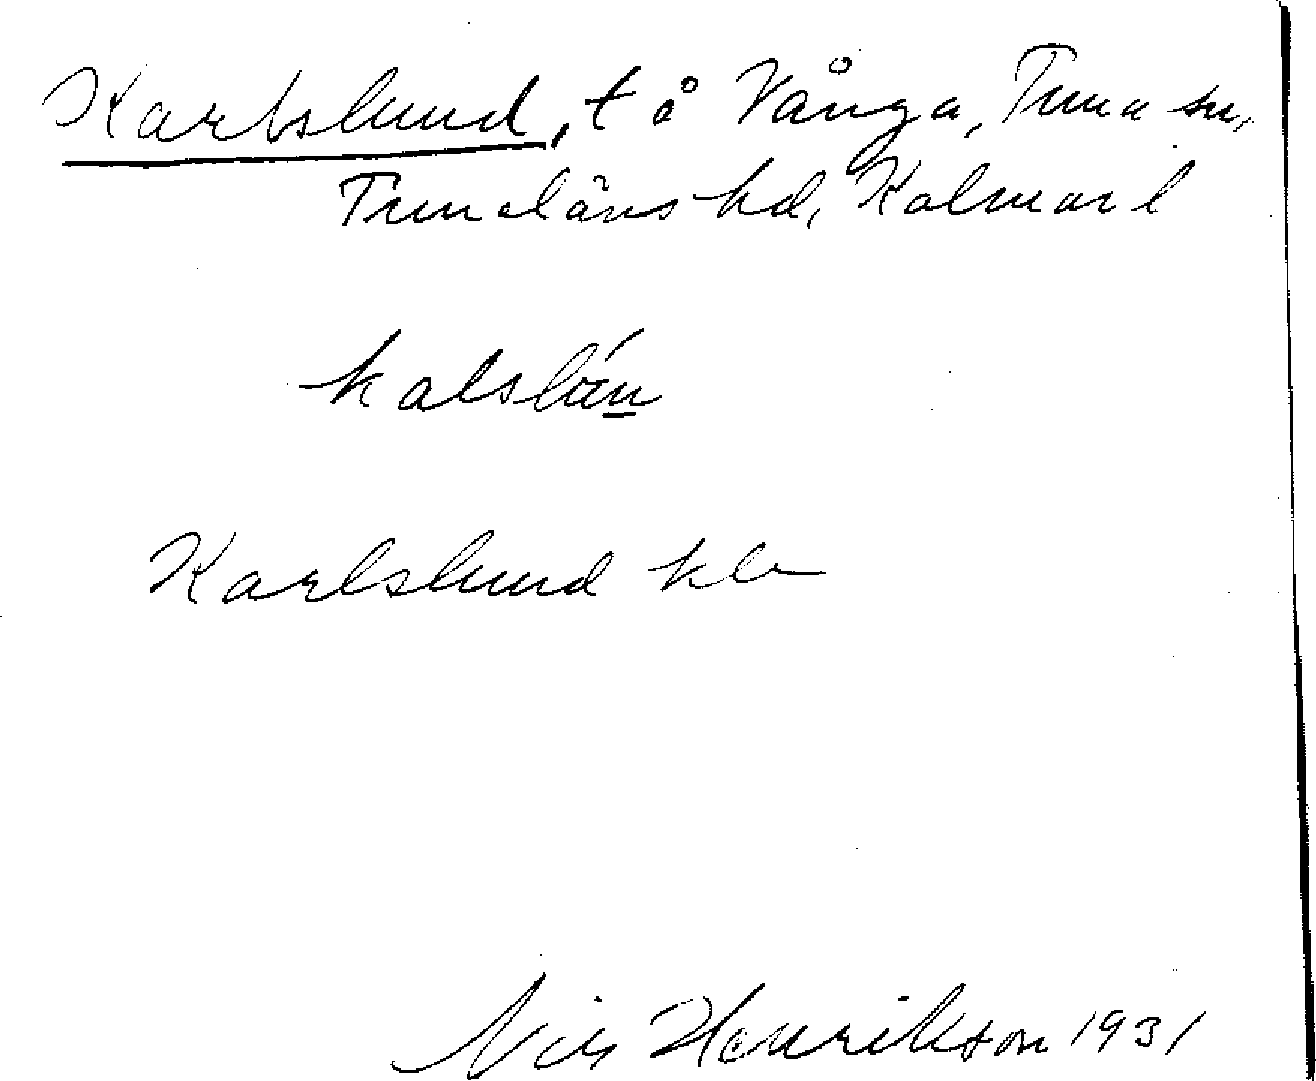 Karlslund, t å Vånga, Tuna sn,
Tunaläns hd, Kalmar l
Karlslund kla
Nils Henrikson 1931